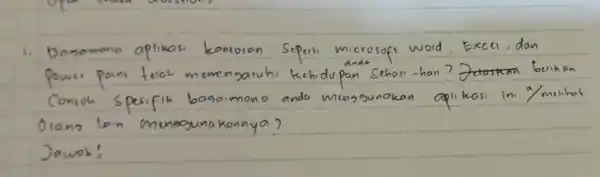 1. Bagaimana aplikasi kantoran seperti microsoft word, Excel, dan
Power point telah memengaruhi kehidupan anda sehari-hari? Jelaskan berikan
Contoh spesifik bagaimana anda menggunakan aplikasi ini a/ melihat
Orang lain menggunakannya?
Jawab: